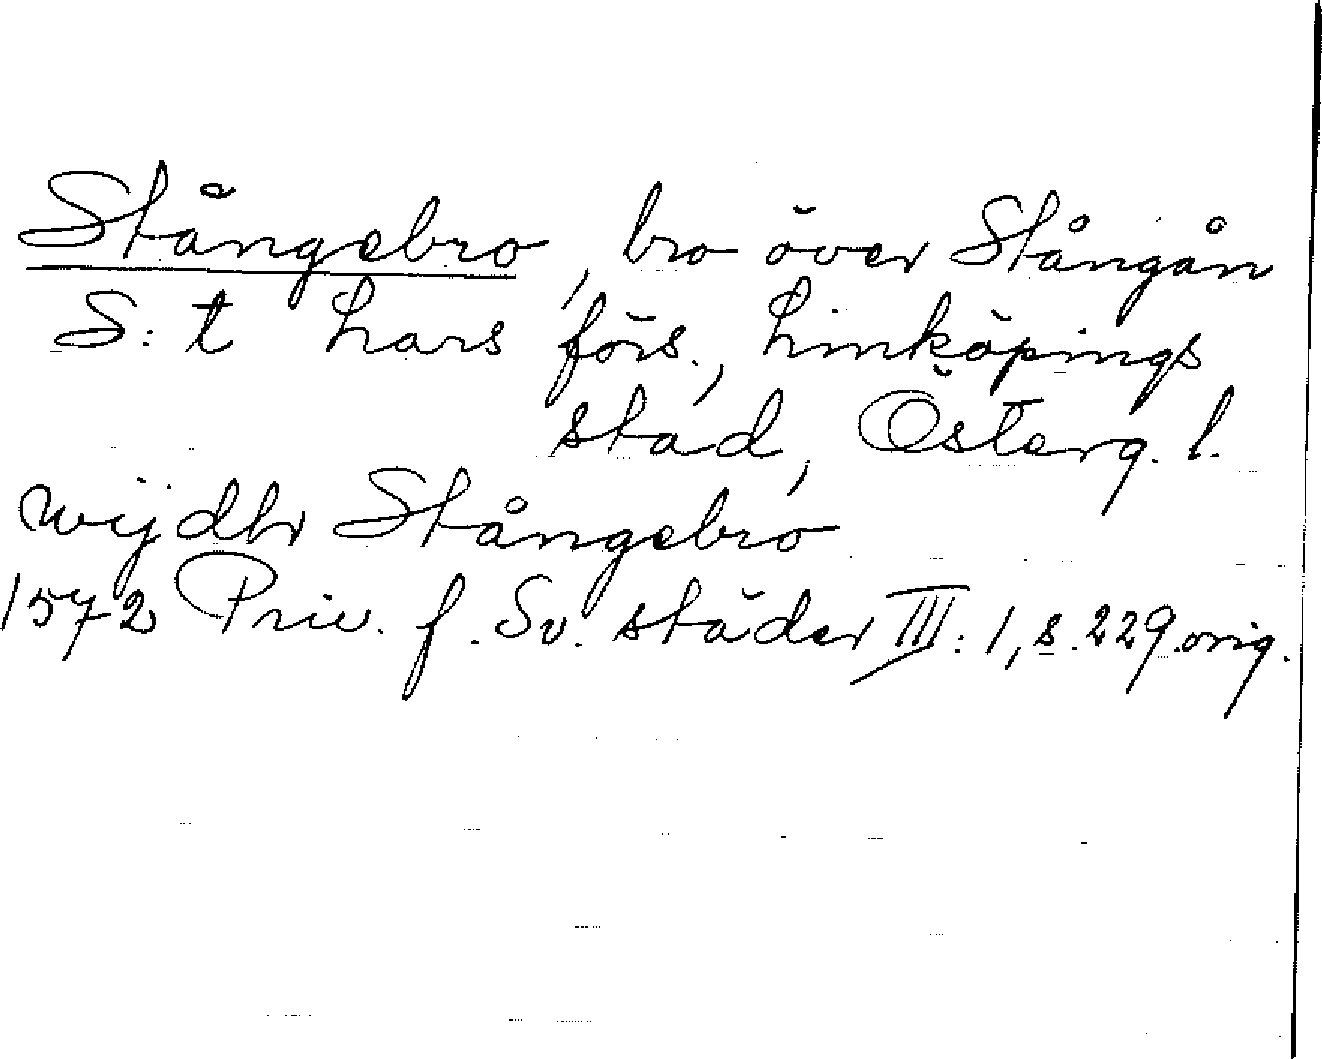 Stångebro, bro över Stångån
S:t Lars förs., Linköpings
stad, Österg. l.
wijdh Stångebro
1572 Priv. f. Sv. städer III: 1, s. 229. orig.